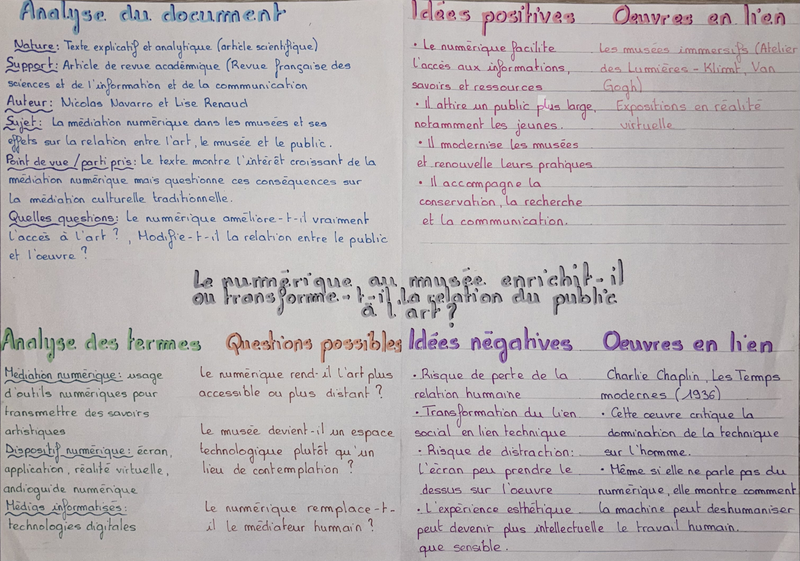 Analyse du document
Nature: Texte explicatif et analytique (article scientifique)
Support: Article de revue académique (Revue française des
sciences et de l'information et de la communication
Auteur: Nicolas Navarro et Lise Renaud
Sujet: La médiation numérique dans les musées et ses
effets sur la relation entre l'art, le musée et le public.
Point de vue / parti pris: Le texte montre l'intérêt croissant de la
médiation numérique mais questionne ces conséquences sur
la médiation culturelle traditionnelle.
Quelles questions: Le numérique améliore-t-il vraiment
l'accès à l'art ? , Modifie-t-il la relation entre le public
et l'oeuvre ?
Idées positives
• Le numérique facilite
l'accès aux informations,
savoirs et ressources
• Il attire un public plus large,
notamment les jeunes.
• Il modernise les musées
et renouvelle leurs pratiques
• Il accompagne la
conservation, la recherche
et la communication.
Oeuvres en lien
Les musées immersifs (Atelier
des Lumières - Klimt, Van
Gogh)
Expositions en réalité
virtuelle
Le numérique au musée enrichit-il
ou transforme-t-il la relation du public
à l'art ?
Analyse des termes
Médiation numérique: usage
d'outils numériques pour
transmettre des savoirs
artistiques
Dispositif numérique: écran,
application, réalité virtuelle,
andioguide numérique
Médias informatisés:
technologies digitales
Questions possibles
Le numérique rend-il l'art plus
accessible ou plus distant ?
Le musée devient-il un espace
technologique plutôt qu'un
lieu de contemplation ?
Le numérique remplace-t-
il le médiateur humain ?
Idées négatives
• Risque de perte de la
relation humaine
• Transformation du lien
social en lien technique
• Risque de distraction:
L'écran peu prendre le
dessus sur l'oeuvre
• L'expérience esthétique
peut devenir plus intellectuelle
que sensible.
Oeuvres en lien
Charlie Chaplin, Les Temps
modernes (1936)
• Cette oeuvre critique la
domination de la technique
sur l'homme.
• Même si elle ne parle pas du
numérique, elle montre comment
la machine peut deshumaniser
le travail humain.